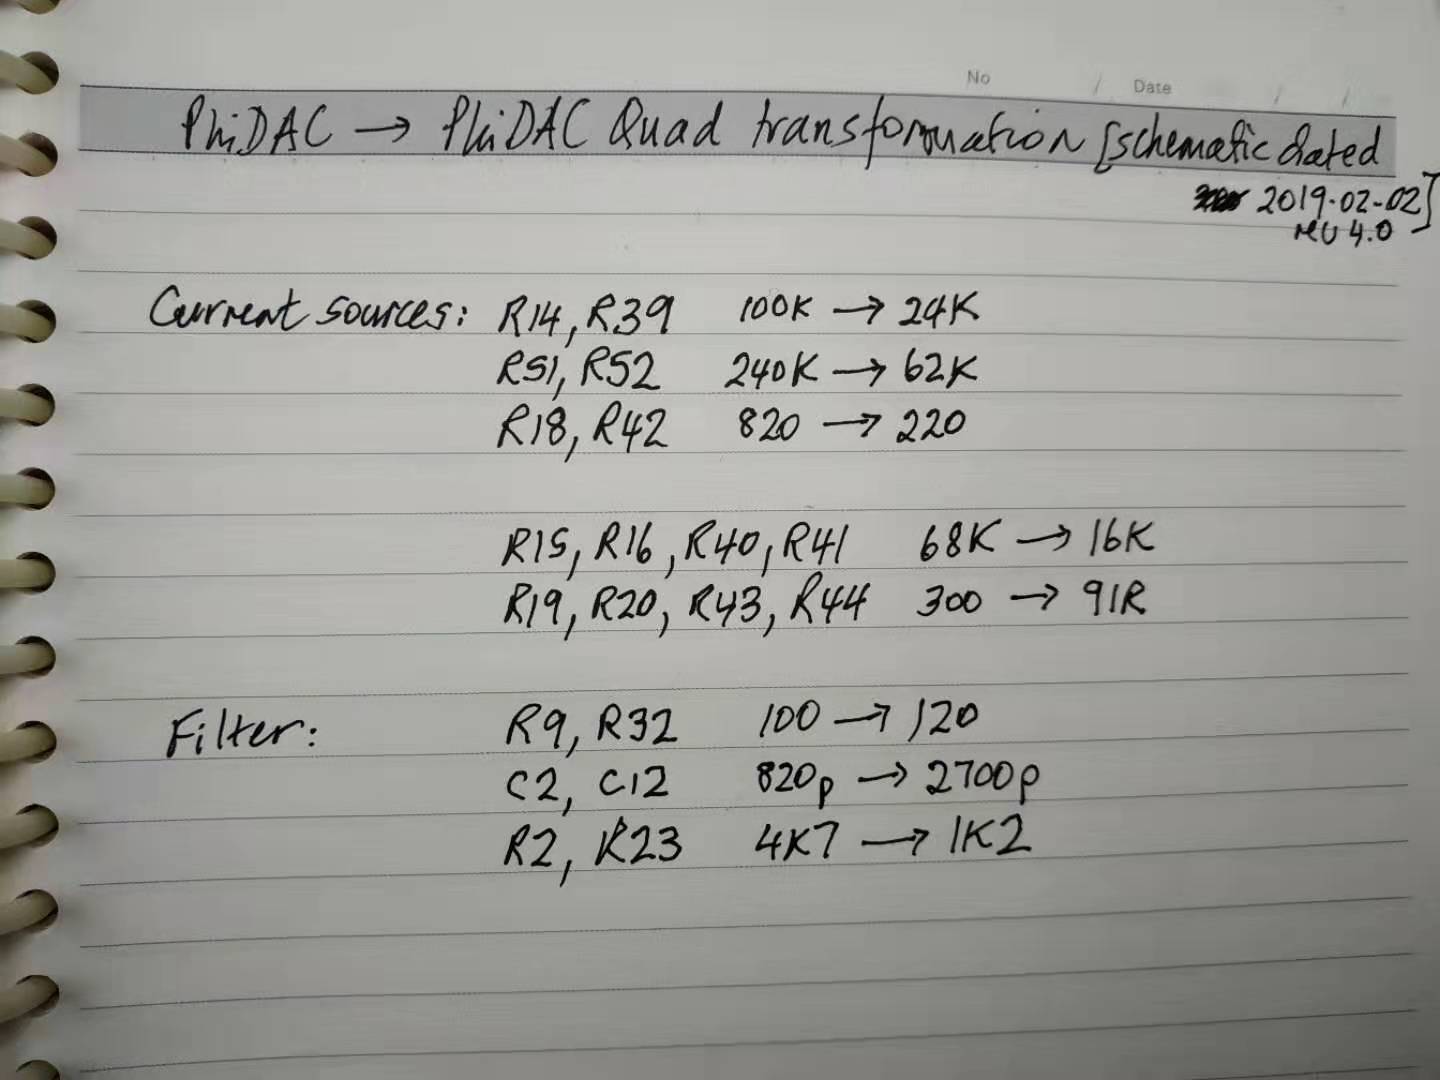 No / Date / /
PhiDAC → PhiDAC Quad transformation [schematic dated
2019-02-02]
rev 4.0
Current sources: R14, R39 100K → 24K
R51, R52 240K → 62K
R18, R42 820 → 220
R15, R16, R40, R41 68K → 16K
R19, R20, R43, R44 300 → 91R
Filter: R9, R32 100 → 120
C2, C12 820p → 2700p
R2, R23 4K7 → 1K2